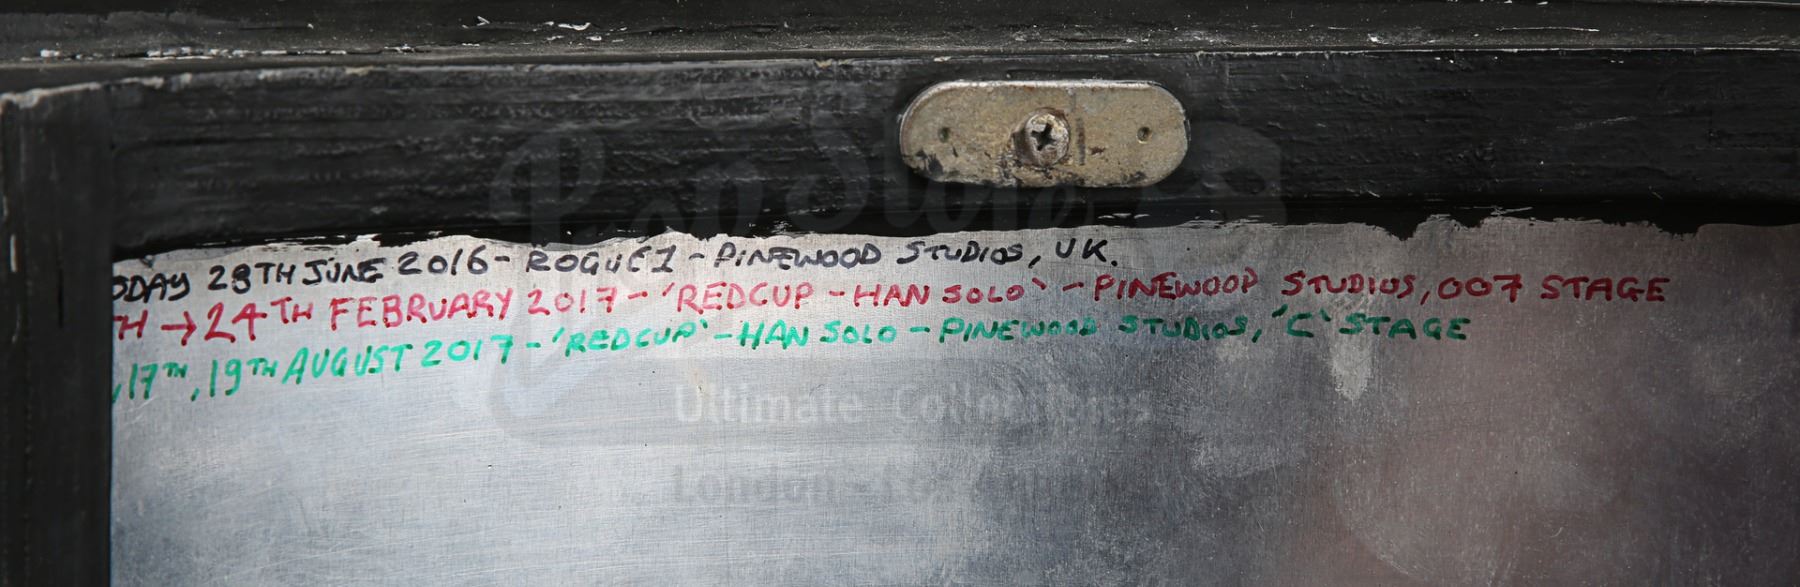 ODAY 28TH JUNE 2016 - ROGUE 1 - PINEWOOD STUDIOS, UK.
TH → 24TH FEBRUARY 2017 - 'REDCUP - HAN SOLO' - PINEWOOD STUDIOS, 007 STAGE
, 17TH, 19TH AUGUST 2017 - 'REDCUP' - HAN SOLO - PINEWOOD STUDIOS, 'C' STAGE
PropStore
Ultimate Collectables
London